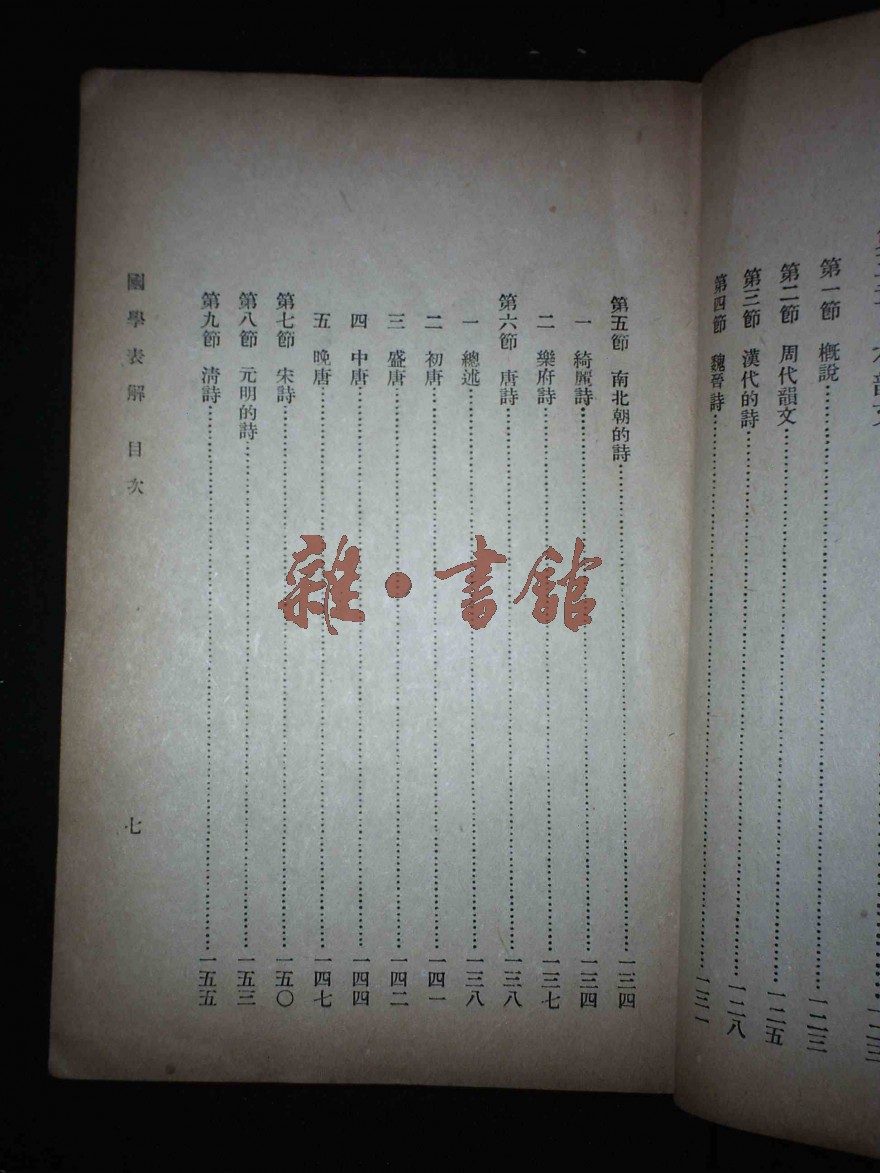 第一節　概說……一二三
第二節　周代韻文……一二五
第三節　漢代的詩……一二八
第四節　魏晉詩……一三一
第五節　南北朝的詩……一三四
一　綺麗詩……一三四
二　樂府詩……一三七
第六節　唐詩……一三八
一　總述……一三八
二　初唐……一四一
三　盛唐……一四二
四　中唐……一四四
五　晚唐……一四七
第七節　宋詩……一五〇
第八節　元明的詩……一五三
第九節　清詩……一五五
國學表解　目次
七
雜・書館